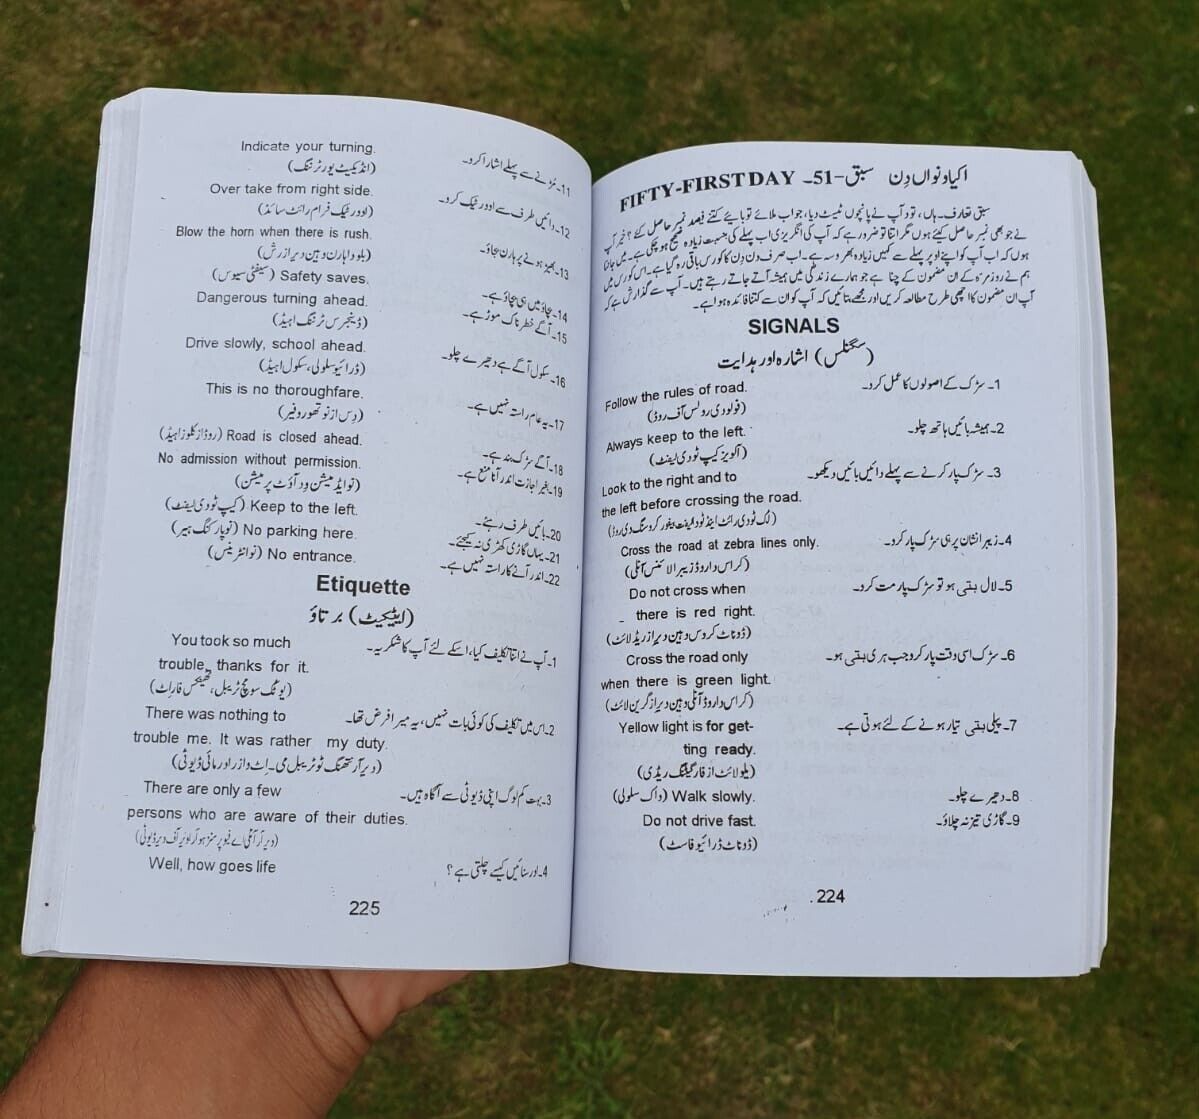 اکیاونواں دِن سبق -51- FIFTY-FIRST DAY
سبق تعارف۔ ہاں، تو آپ نے پانچوں ٹیسٹ دیا، جواب ملائے تو بتائیے کتنے فیصد نمبر حاصل کئے؟ خیر آپ
نے جو بھی نمبر حاصل کیئے ہوں مگر اتنا تو ضرور ہے کہ آپ کی انگریزی اب پہلے کی بنسبت زیادہ صحیح ہو چکی ہے۔ میں جانتا
ہوں کہ اب آپ کو اپنے اوپر پہلے سے کہیں زیادہ بھروسہ ہے۔ اب صرف دن کا کورس باقی رہ گیا ہے۔ اس کورس میں
ہم نے روزمرہ کے ان مضمون کے چنا ہے جو ہمارے زندگی میں ہمیشہ آتے جاتے رہتے ہیں۔ آپ سے گذارش ہے کہ
آپ ان مضمون کا اچھی طرح مطالعہ کریں اور مجھے بتائیں کہ آپ کو ان سے کتنا فائدہ ہوا ہے۔
SIGNALS
(سگنلس) اشارہ اور ہدایت
1۔ سڑک کے اصولوں کا عمل کرو۔ Follow the rules of road.
(فولو دی رولس آف روڈ)
2۔ ہمیشہ بائیں ہاتھ چلو۔ Always keep to the left.
(آلویز کیپ ٹو دی لیفٹ)
3۔ سڑک پار کرنے سے پہلے دائیں بائیں دیکھو۔ Look to the right and to
the left before crossing the road.
(لک ٹو دی رائٹ اینڈ ٹو د لیفٹ بیفور کروسنگ دی روڈ)
4۔ زیبرا نشان پر ہی سڑک پار کرو۔ Cross the road at zebra lines only.
(کراس دا روڈ زیبرا لائنس آنلی)
5۔ لال بتی ہو تو سڑک پار مت کرو۔ Do not cross when
there is red right.
(ڈوناٹ کروس وہین دیر از ریڈ لائٹ)
6۔ سڑک اسی وقت پار کرو جب ہری بتی ہو۔ Cross the road only
when there is green light.
(کراس دا روڈ آنلی وہین دیر از گرین لائٹ)
7۔ پیلی بتی تیار ہونے کے لئے ہوتی ہے۔ Yellow light is for get-
ting ready.
(یلو لائٹ از فار گیٹنگ ریڈی)
8۔ دھیرے چلو۔ Walk slowly. (واک سلولی)
9۔ گاڑی تیز نہ چلاؤ۔ Do not drive fast.
(ڈوناٹ ڈرائیو فاسٹ)
224
11۔ مڑنے سے پہلے اشارا کرو۔ Indicate your turning.
(انڈیکیٹ یور ٹرننگ)
12۔ دائیں طرف سے اوور ٹیک کرو۔ Over take from right side.
(اوور ٹیک فرام رائٹ سائڈ)
13۔ بھیڑ ہونے پر ہارن بجاؤ۔ Blow the horn when there is rush.
(بلو دا ہارن وہین دیر از رش)
14۔ بچاؤ میں ہی بچاؤ ہے۔ Safety saves. (سیفٹی سیوس)
15۔ آگے خطرناک موڑ ہے۔ Dangerous turning ahead.
(ڈینجرس ٹرننگ اہیڈ)
16۔ سکول آگے ہے دھیرے چلو۔ Drive slowly, school ahead.
(ڈرائیو سلولی، سکول اہیڈ)
17۔ یہ عام راستہ نہیں ہے۔ This is no thoroughfare.
(دِس از نو تھوروفیر)
18۔ آگے سڑک بند ہے۔ Road is closed ahead. (روڈ از کلوز اہیڈ)
19۔ بغیر اجازت اندر آنا منع ہے۔ No admission without permission.
(نو ایڈمیشن وِد آؤٹ پرمیشن)
20۔ بائیں طرف رہئے۔ Keep to the left. (کیپ ٹو دی لیفٹ)
21۔ یہاں گاڑی کھڑی نہ کیجئے۔ No parking here. (نو پارکنگ ہیر)
22۔ اندر آنے کا راستہ نہیں ہے۔ No entrance. (نو انٹرینس)
Etiquette
(ایٹیکیٹ) برتاؤ
1۔ آپ نے اتنا تکلیف کیا، اسکے لئے آپ کا شکریہ۔ You took so much
trouble, thanks for it.
(یو ٹک سو مچ ٹریبل، تھینکس فار اٹ)
2۔ اس میں تکلیف کی کوئی بات نہیں، یہ میرا فرض تھا۔ There was nothing to
trouble me. It was rather my duty.
(دیر آر نتھنگ ٹو ٹریبل می۔ اِٹ واز رادر مائی ڈیوٹی)
3۔ بہت کم لوگ اپنی ڈیوٹی سے آگاہ ہیں۔ There are only a few
persons who are aware of their duties.
4۔ اور سنائیں کیسے چلتی ہے؟ Well, how goes life
225